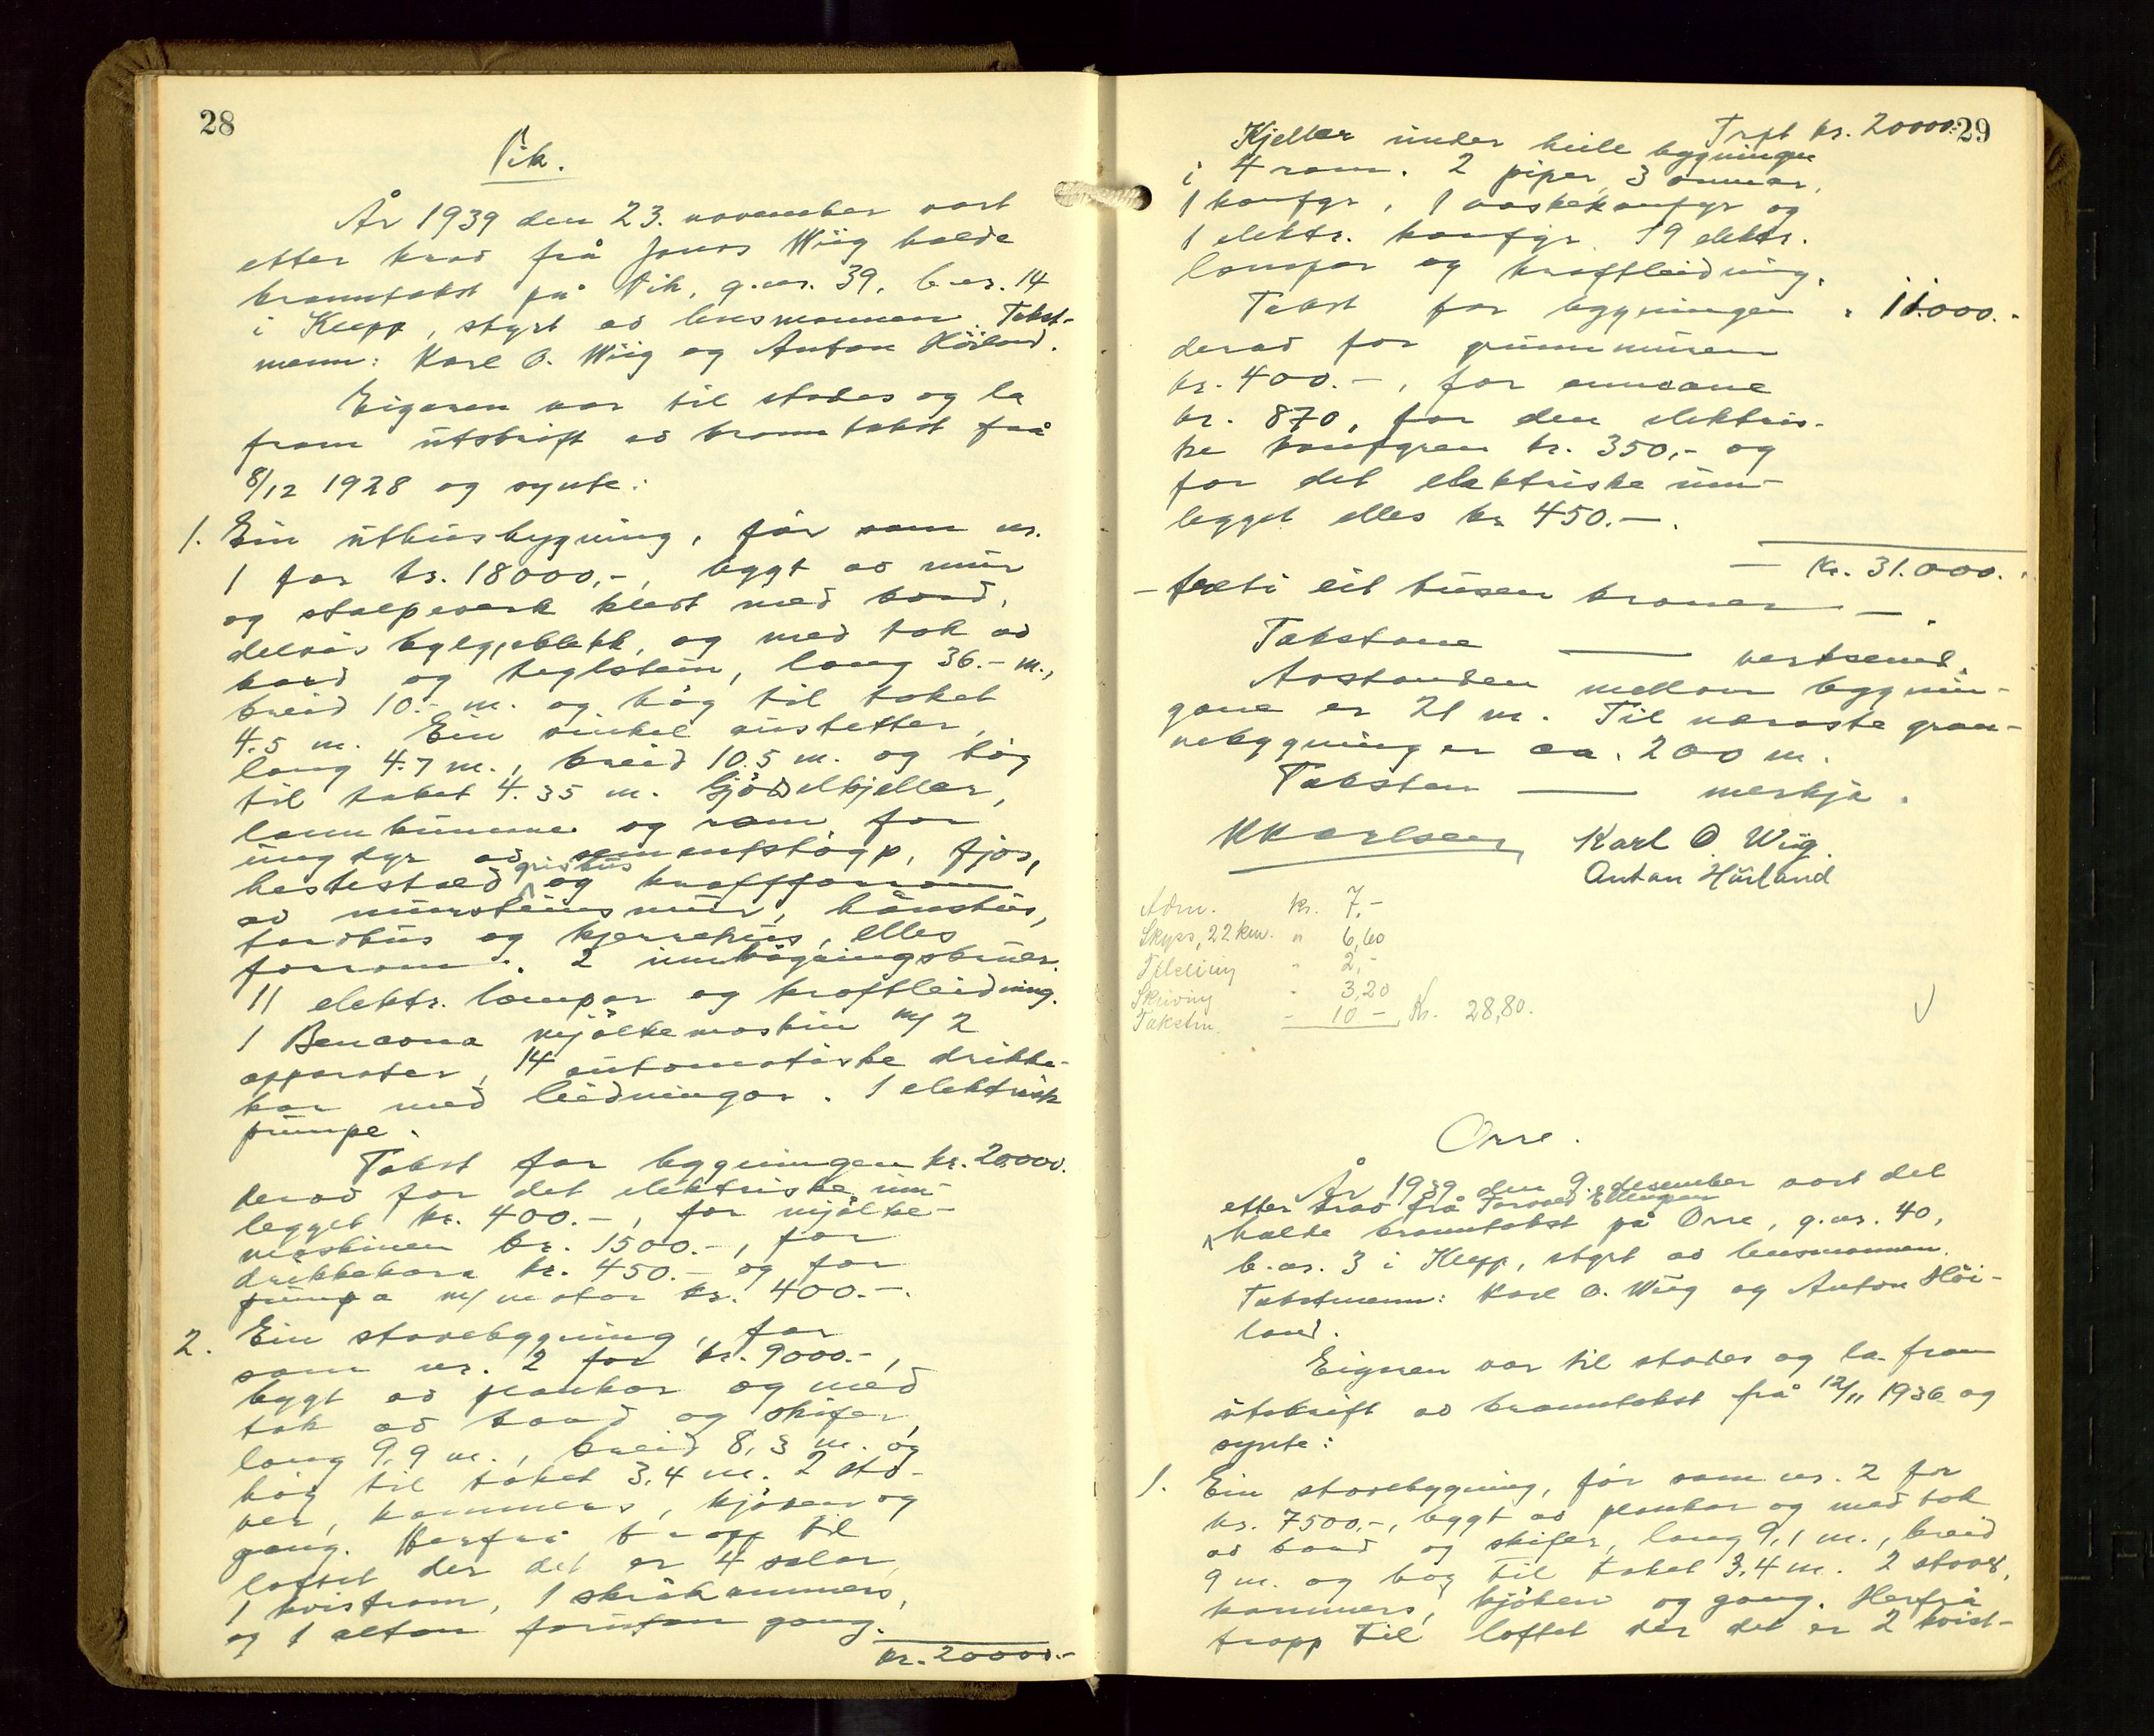 28
Vik.
År 1939 den 23. november vart
etter krav frå Jonas Wiig halde
branntakst på Vik, g.nr. 39, b.nr. 14
i Klepp, styrt av lensmannen. Takst-
menn: Karl O. Wiig og Anton Höiland.
Eigaren var til stades og la
fram utskrift av branntakst frå
8/12 1928 og synte:
1. Ein uthusbygning, før som nr.
1 for kr. 18000,-, bygt av mur
og stolpeverk kledt med bord,
delvis bylgjeblekk, og med tak av
bord og teglstein, lang 36.- m.,
breid 10.- m. og høg til taket
4.5 m. Ein vinkel austetter,
lang 4.7 m., breid 10.5 m. og høg
til taket 4.35 m. Gjödselkjellar,
lannkumme og rom for
ungdyr av sementstøyp, fjos,
hestestall grishus og kraftforrom
av mursteinsmur, hönsehus,
torvhus og kjerrehus, elles
forrom. 2 innkøyringsbruer.
11 elektr. lampar og kraftleidning.
1 Benaona mjölkemaskin m/ 2
apparater, 14 automatiske drikke-
kar med leidningar. 1 elektrisk
pumpe.
Takst for bygningen kr. 20.000.
derav for det elektriske inn-
legget kr. 400.-, for mjölke-
maskinen kr. 1500.-, for
drikkekara kr. 450.- og for
pumpa m/ motor kr. 400.-.
2. Ein stovebygning, før
som nr. 2 for kr. 9000.-,
bygt av plankar og med
tak av bord og skifer,
lang 9,9 m., breid 8,3 m. og
høg til taket 3,4 m. 2 sto-
ver, kammers, kjöken og
gang. Herfrå trapp til
loftet der det er 4 salar,
1 kvistrom, 1 skråkammers,
og 1 altan forutan gang.
kr. 20000.-
29
Trpt kr. 20000.-
Kjellar under heile bygningen
i 4 rom. 2 piper, 3 omnar,
1 komfyr, 1 vaskekomfyr og
1 elektr. komfyr. 19 elektr.
lampar og kraftleidning.
Takst for bygningen " 11.000.-
derav for grunnmuren
kr. 400.-, for omnane
kr. 870, for den elektris-
ke komfyren kr. 350,- og
for det elektriske inn-
legget elles kr 450.-.
Kr. 31.000.-
- tretti eit tusen kroner -
Takstane — vertsemd.
Avstanden mellom bygnin-
gane er 21 m. Til næraste gran-
nebygning er ca. 200 m.
Taksten — merkja.
KKarlsen Karl O. Wiig.
Anton Höiland
Adm. kr. 7,-
Skyss, 22 km. " 6,60
Tilseiing " 2,-
Skriving " 3,20
Takstm. - 10 - Kr. 28,80.
Orre.
År 1939 den 9. desember vart det
etter krav frå Torvald Ellingsen
halde branntakst på Orre, g.nr. 40,
b.nr. 3 i Klepp, styrt av lensmannen.
Takstmenn: Karl O. Wiig og Anton Höi-
land.
Eigaren var til stades og la fram
utskrift av branntakst frå 12/11 1936 og
synte:
1. Ein stovebygning, før som nr. 2 for
kr. 7500.-, bygt av plankar og med tak
av bord og skifer, lang 9,1 m., breid
9 m. og høg til taket 3,4 m. 2 stover,
kammers, kjöken og gang. Herfrå
trapp til loftet der det er 2 kvist-